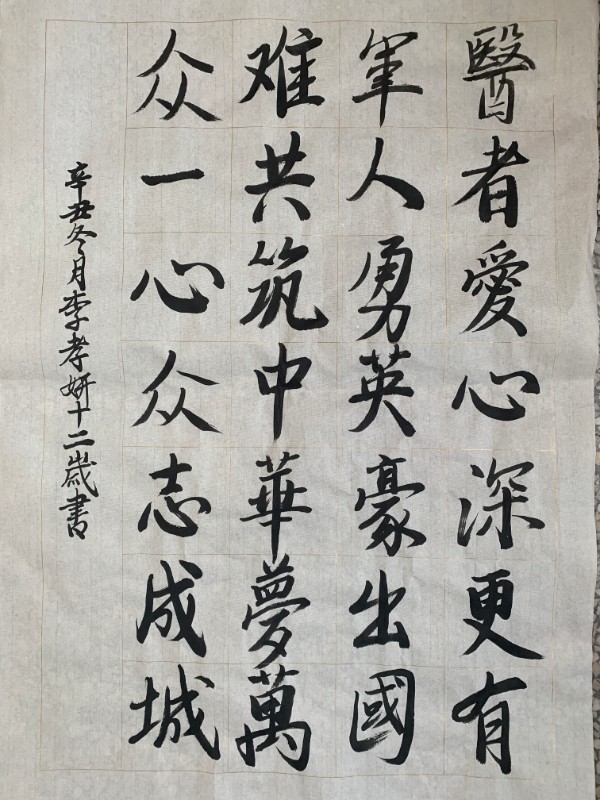 醫者愛心深更有
軍人勇英豪出國
难共筑中華夢萬
众一心众志成城
辛丑冬月李孝妍十二歲書